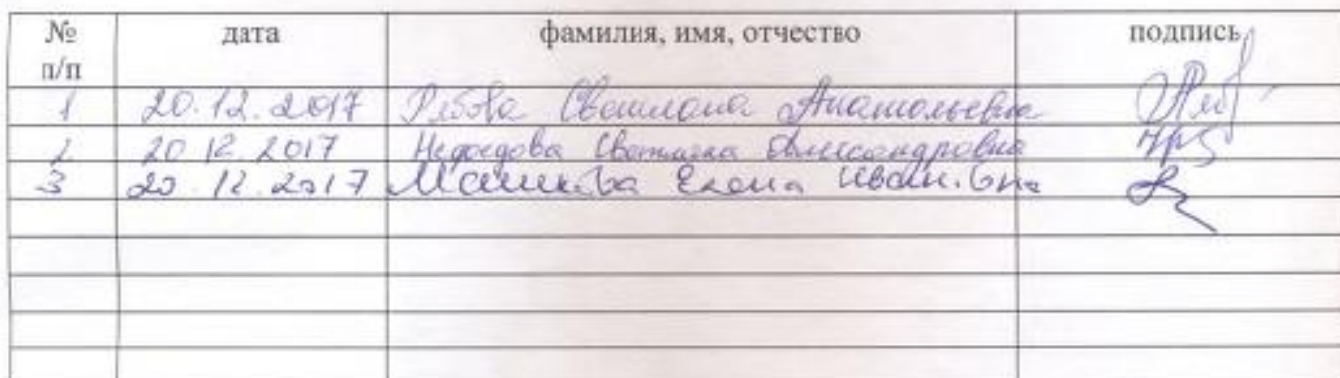 № п/п дата фамилия, имя, отчество подпись
1 20.12.2017 Светлана Анатольевна
2 20.12.2017 Светлана Александровна
3 20.12.2017 Елена Ивановна